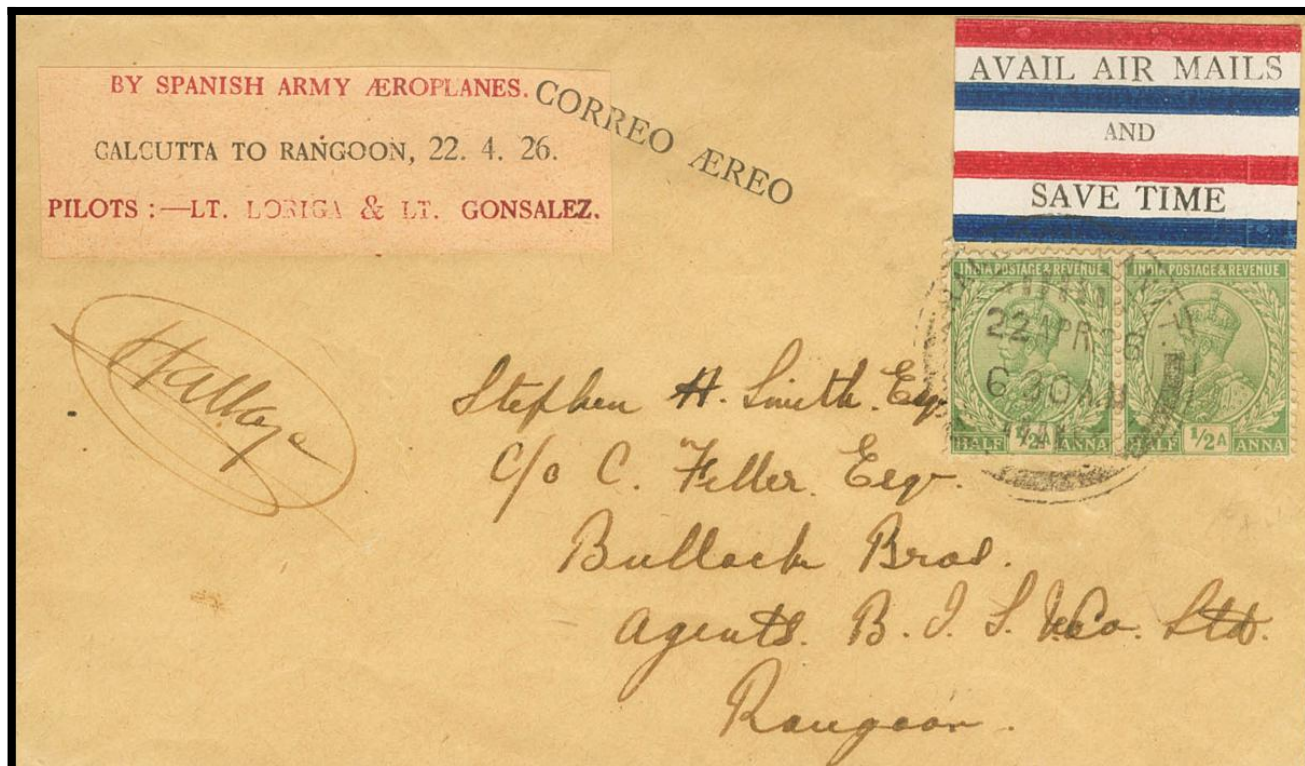 BY SPANISH ARMY ÆROPLANES.
CALCUTTA TO RANGOON, 22. 4. 26.
PILOTS :—LT. LORIGA & LT. GONSALEZ.
CORREO ÆREO
AVAIL AIR MAILS
AND
SAVE TIME
INDIA POSTAGE & REVENUE
HALF 1/2A ANNA
INDIA POSTAGE & REVENUE
HALF 1/2A ANNA
22 APR 26
6 30 A.M
Stephen H. Smith. Esq
C/o C. Feller. Esq.
Bullock Bros.
Agents. B. I. S. N. Co. Ltd.
Rangoon.